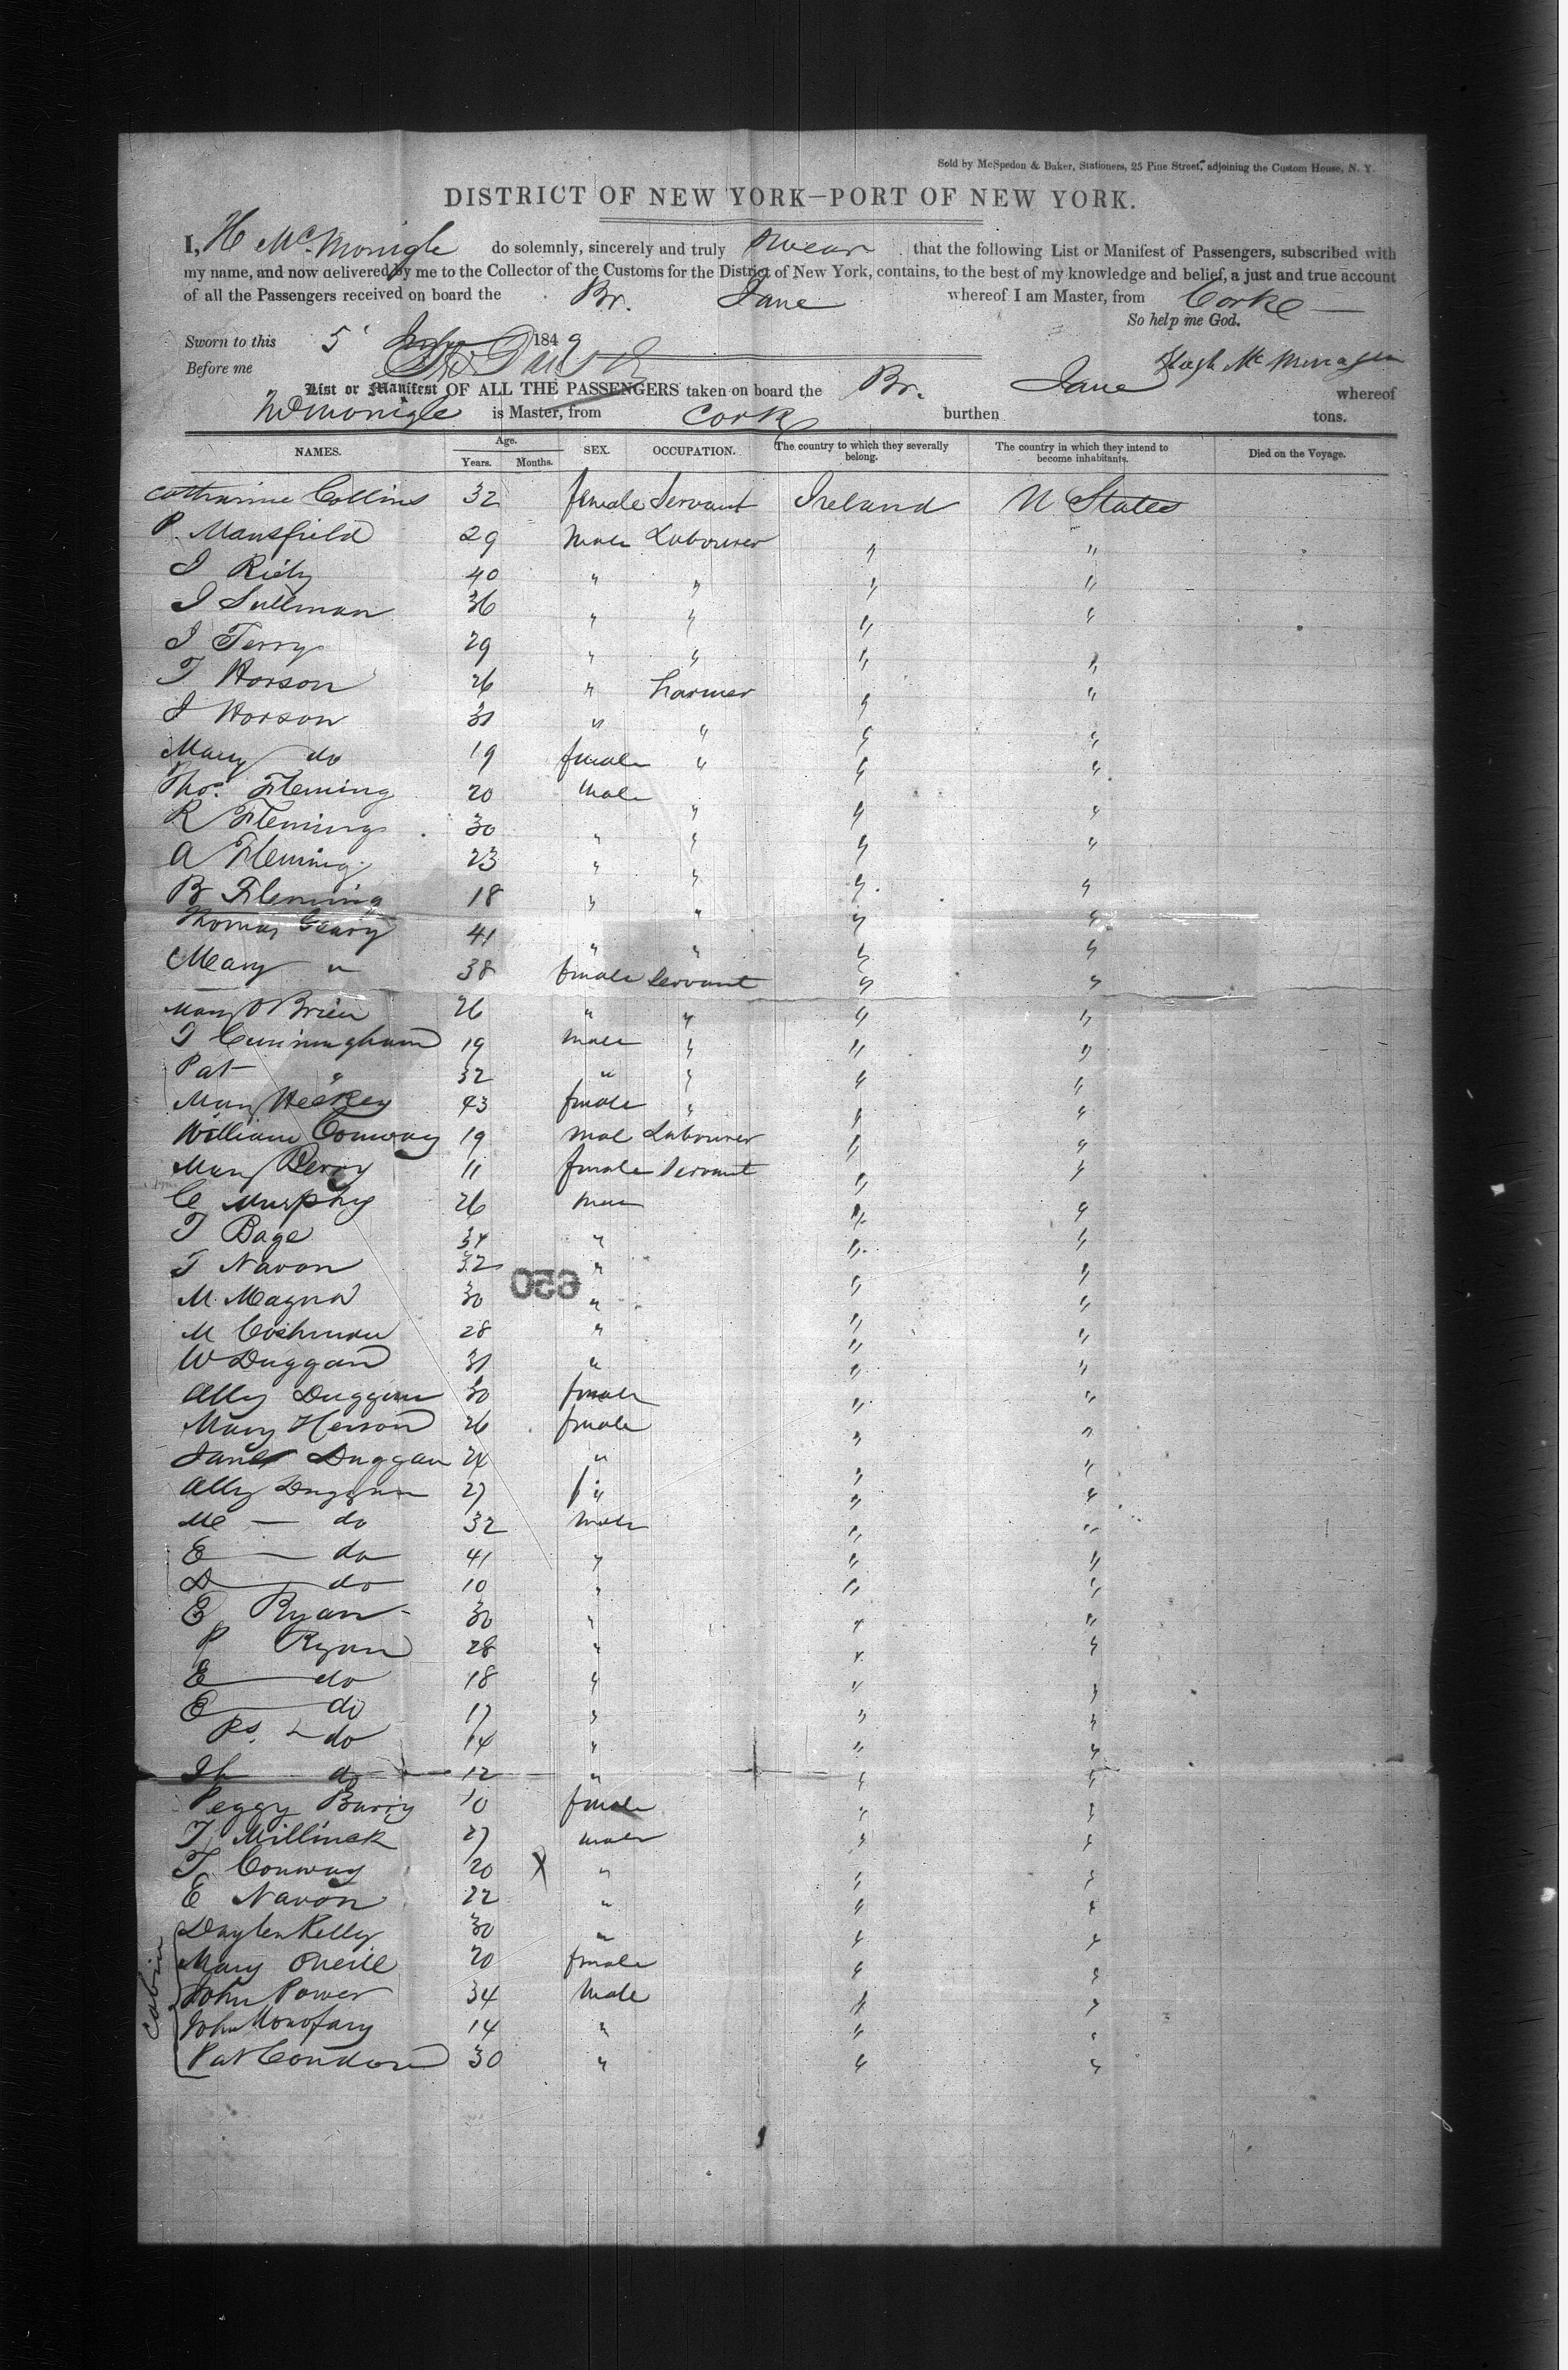 Sold by McSpedon & Baker, Stationers, 25 Pine Street, adjoining the Custom House, N. Y.
DISTRICT OF NEW YORK—PORT OF NEW YORK.
I, H McMonigle do solemnly, sincerely and truly swear that the following List or Manifest of Passengers, subscribed with
my name, and now delivered by me to the Collector of the Customs for the District of New York, contains, to the best of my knowledge and belief, a just and true account
of all the Passengers received on board the Br. Jane whereof I am Master, from Corke
So help me God.
Sworn to this 5 1849
Before me Hugh Mc
List or Manifest OF ALL THE PASSENGERS taken on board the Br. Jane whereof
McMonigle is Master, from Cork burthen tons.
NAMES. Age. Years. Months. SEX. OCCUPATION. The country to which they severally belong. The country in which they intend to become inhabitants. Died on the Voyage.
Catharine Collins 32 female Servant Ireland U States
P. Mansfield 29 male Labourer " "
J Riely 40 " " " "
J Sullivan 36 " " " "
J Terry 29 " " " "
T Horson 26 " Farmer " "
J Horson 31 " " " "
Mary do 19 female " " "
Thos. Fleming 20 male " " "
R Fleming 30 " " " "
A Fleming 23 " " " "
B Fleming 18 " " " "
Thomas Geary 41 " " " "
Mary " 38 female Servant " "
Mary O Brien 26 " " " "
T Cunningham 19 male " " "
Pat " 32 " " " "
Mary 43 female " " "
William Conway 19 mal Labourer " "
Mary 11 female Servant " "
C Murphy 26 male " "
T Bage 34 " " "
T Navon 32 " " "
650
M. 30 " " "
M 28 " " "
W Duggan 31 " " "
Ally Duggan 30 female " "
Mary 26 female " "
Jane Duggan 24 " " "
Ally Duggan 27 " " "
M — do 32 male " "
E — do 41 " " "
D — do 10 " " "
E Ryan 30 " " "
P Ryan 28 " " "
E — do 18 " " "
E — do 17 " " "
do 14 " " "
do 12 " " "
Peggy Barry 10 female " "
T Millinck 27 male " "
T. Conway 20 X " " "
E Navon 22 " " "
Cabin
Kelly 30 " " "
Mary Oneill 20 female " "
John Power 34 Male " "
John 14 " " "
Pat Condon 30 " " "